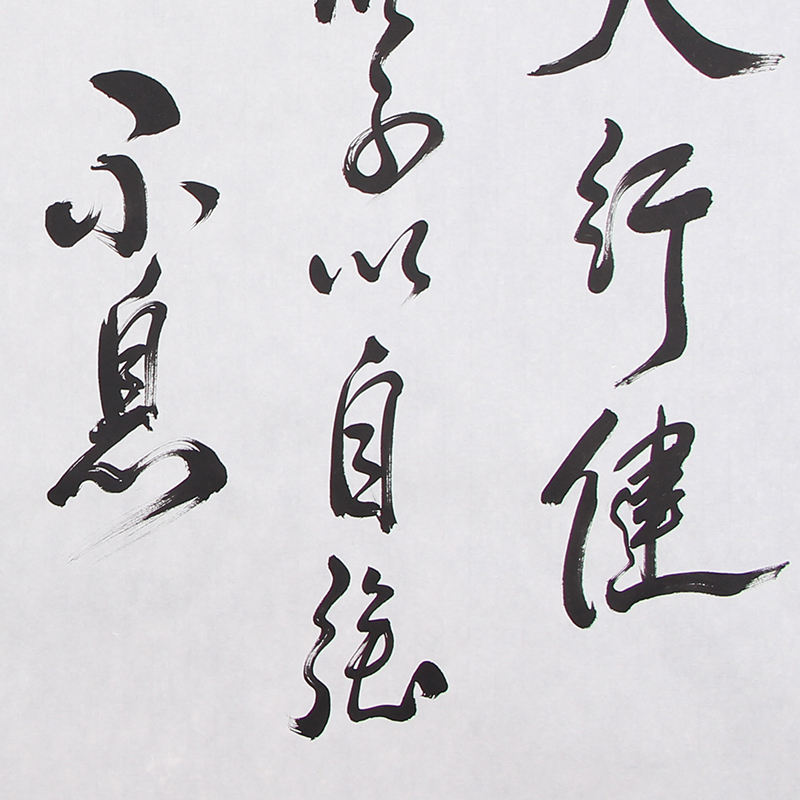 天行健
君子以自強
不息